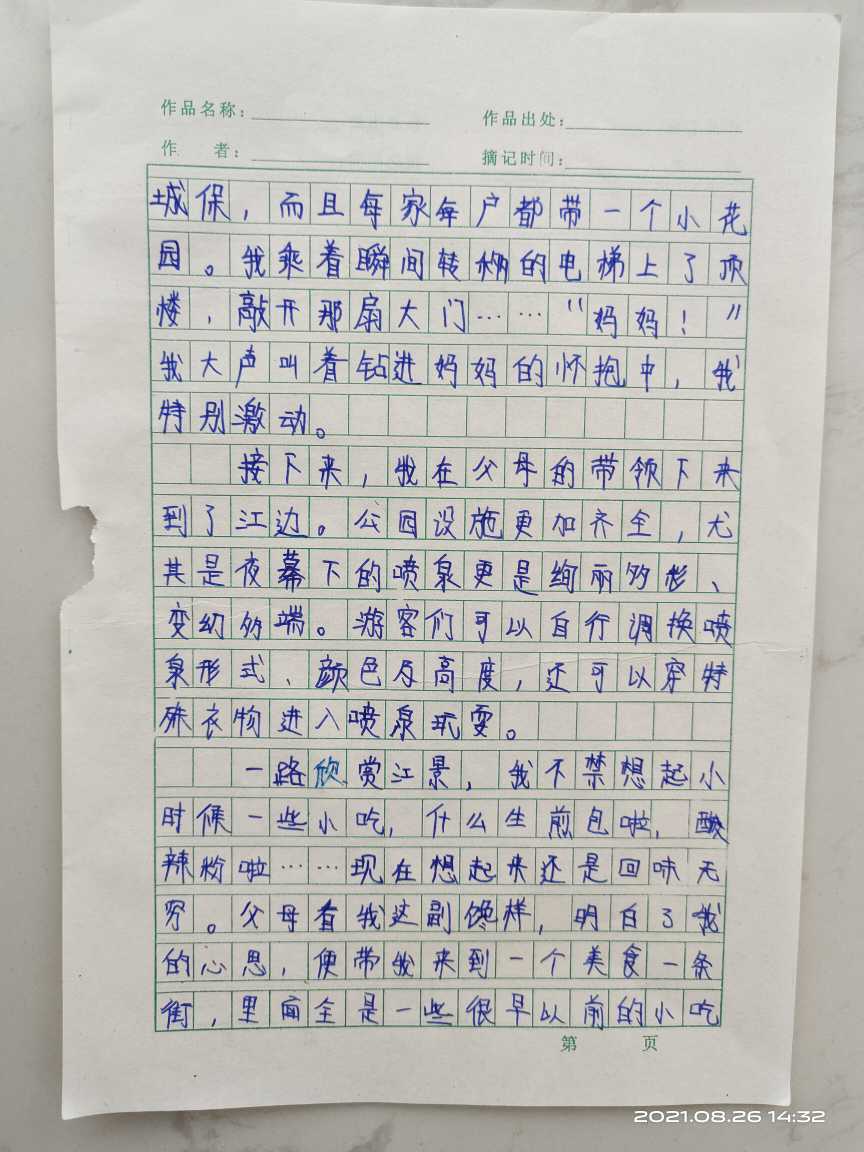 作品名称：
作品出处：
作 者：
摘记时间：
城保，而且每家每户都带一个小花
园。我乘着瞬间转梯的电梯上了顶
楼，敲开那扇大门……“妈妈！”
我大声叫着钻进妈妈的怀抱中，我
特别激动。
接下来，我在父母的带领下来
到了江边。公园设施更加齐全，尤
其是夜幕下的喷泉更是绚丽多彩、
变幻多端。游客们可以自行调换喷
泉形式、颜色及高度，还可以穿特
殊衣物进入喷泉玩耍。
一路欣赏江景，我不禁想起小
时候一些小吃，什么生煎包啦，酸
辣粉啦……现在想起来还是回味无
穷。父母看我这副馋样，明白了我
的心思，便带我来到一个美食一条
街，里面全是一些很早以前的小吃
第 页
2021.08.26 14:32